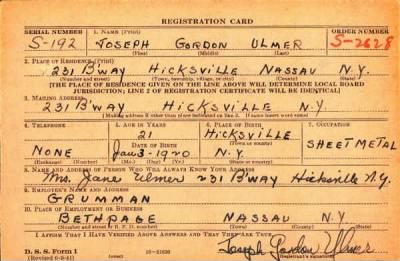 REGISTRATION CARD
SERIAL NUMBER 1. NAME (Print) ORDER NUMBER
S-192 JOSEPH GORDON ULMER S-2628
(First) (Middle) (Last)
2. PLACE OF RESIDENCE (Print)
231 B'WAY HICKSVILLE NASSAU N.Y.
(Number and street) (Town, township, village, or city) (County) (State)
[THE PLACE OF RESIDENCE GIVEN ON THE LINE ABOVE WILL DETERMINE LOCAL BOARD
JURISDICTION; LINE 2 OF REGISTRATION CERTIFICATE WILL BE IDENTICAL]
3. MAILING ADDRESS
231 B'WAY HICKSVILLE N.Y.
[Mailing address if other than place indicated on line 2. If same, insert word same]
4. TELEPHONE 5. AGE IN YEARS 6. PLACE OF BIRTH 7. OCCUPATION
21 HICKSVILLE
DATE OF BIRTH (Town or county)
NONE Jan 3-1920 N.Y. SHEET METAL
(Exchange) (Number) (Mo.) (Day) (Yr.) (State or country)
8. NAME AND ADDRESS OF PERSON WHO WILL ALWAYS KNOW YOUR ADDRESS
Mrs. Jane Ulmer 231 B'WAY Hicksville N.Y.
9. EMPLOYER'S NAME AND ADDRESS
GRUMMAN
10. PLACE OF EMPLOYMENT OR BUSINESS
BETHPAGE NASSAU N.Y
(Number and street or R. F. D. number) (Town) (County) (State)
I AFFIRM THAT I HAVE VERIFIED ABOVE ANSWERS AND THAT THEY ARE TRUE.
D. S. S. Form 1
(Revised 6-9-41) Joseph Gordon Ulmer
(Registrant's signature)